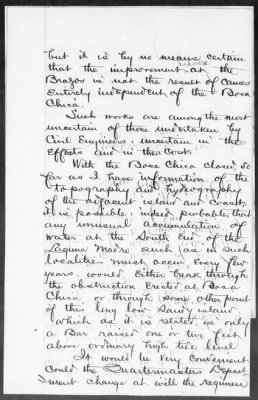 but it is by no means certain
that the improvement reported at the
Brazos is not the result of causes
Entirely independent of the Boca
Chica.
Such works are among the most
uncertain of those undertaken by
Civil Engineers; uncertain in the
effects and in the Cost.
With the Boca Chica closed, so
far as I have information of the
topography and hydrography
of the adjacent island and coast,
it is possible, indeed, probable, that
any unusual accumulation of
water at the South End of the
Laguna Madre such as in such
localities must occur Every few
years, would Either break through
the obstruction Erected at Boca
Chica or through some other point
of this long low Sandy island,
which as it is stated is only
a Bar raised one or two feet
above ordinary high tide level
It would be very Convenient
Could the Quartermasters Depart
ment change at will the regimen